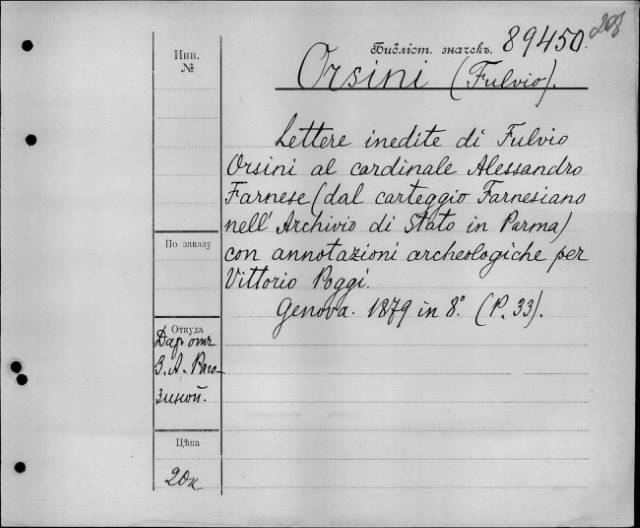 298
Библіот. значекъ. 89450.
Инв.
№
Orsini (Fulvio).
Lettere inedite di Fulvio
Orsini al cardinale Alessandro
Farnese (dal carteggio Farnesiano
nell' Archivio di Stato in Parma)
con annotazioni archeologiche per
Vittorio Poggi.
Genova. 1879 in 8º. (P. 33).
По заказу
Откуда
Даръ отъ
З. А. Раго-
зиной.
Цѣна
20к